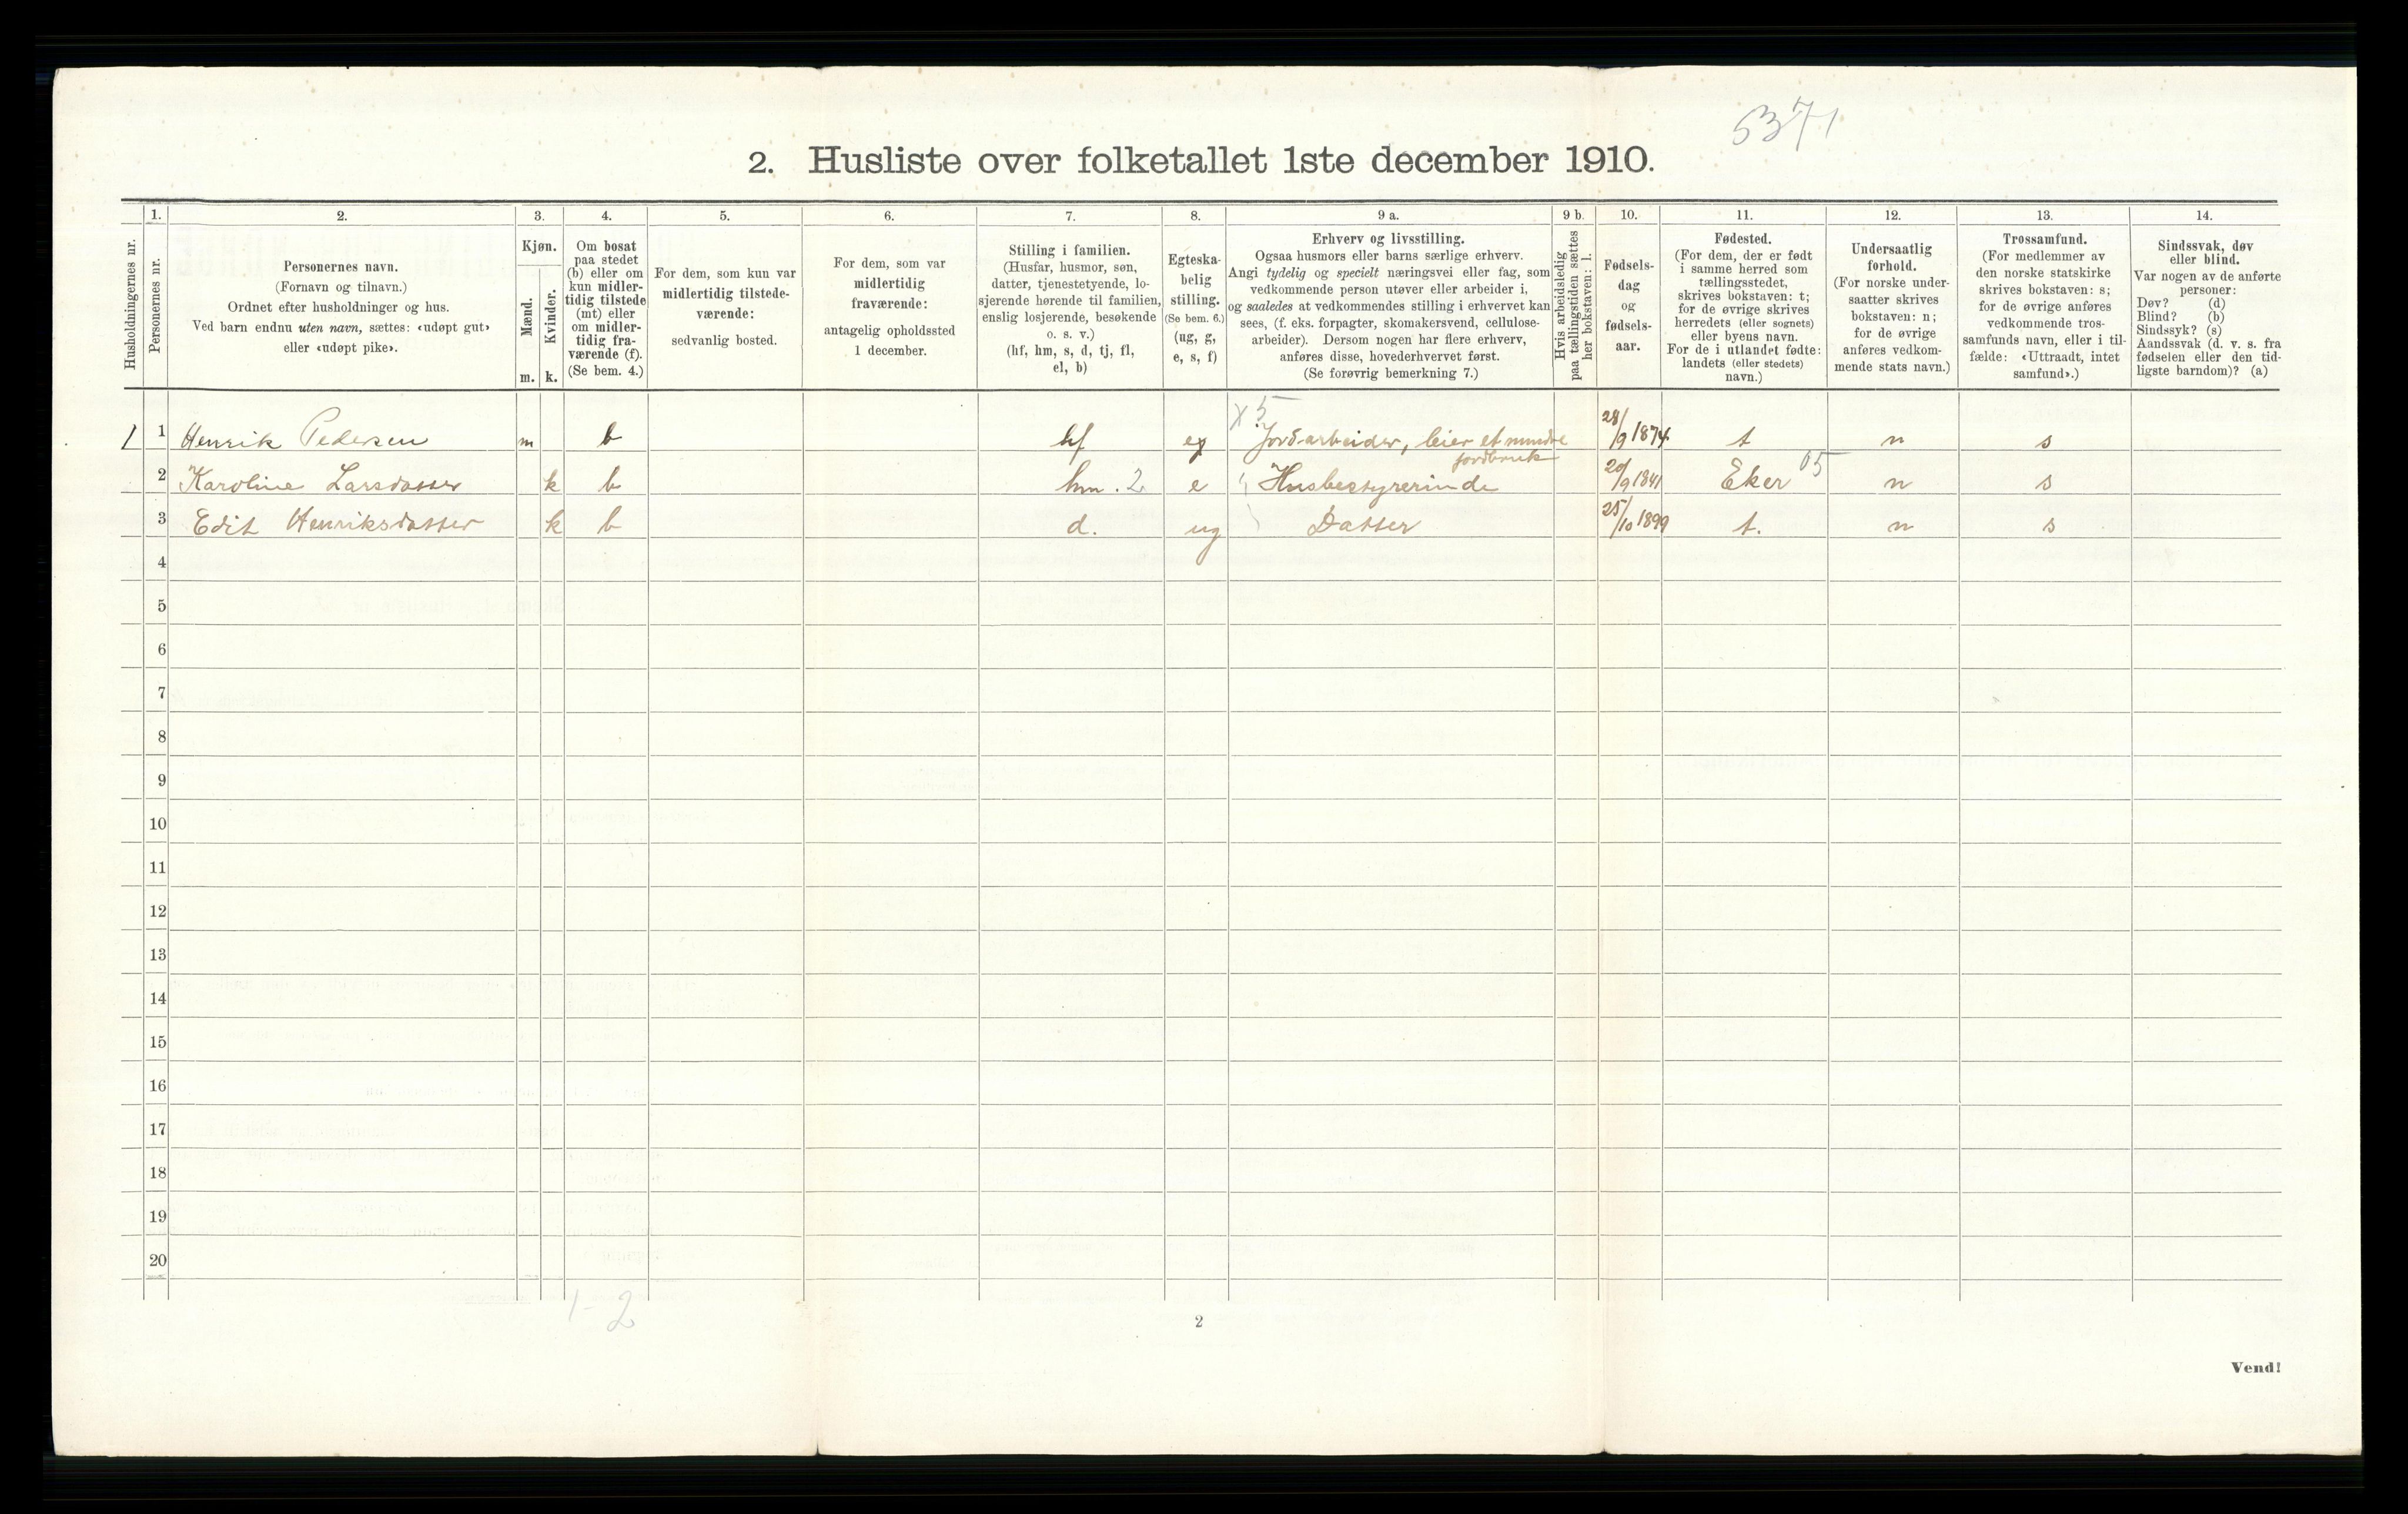 5371
2. Husliste over folketallet 1ste december 1910.
Husholdningernes nr.
1.
Personernes nr.
2.
Personernes navn.
(Fornavn og tilnavn.)
Ordnet efter husholdninger og hus.
Ved barn endnu uten navn, sættes: «udøpt gut»
eller «udøpt pike».
3.
Kjøn.
Mænd.
Kvinder.
m. k.
4.
Om bosat
paa stedet
(b) eller om
kun midler-
tidig tilstede
(mt) eller
om midler-
tidig fra-
værende (f).
(Se bem. 4.)
5.
For dem, som kun var
midlertidig tilstede-
værende:
sedvanlig bosted.
6.
For dem, som var
midlertidig
fraværende:
antagelig opholdssted
1 december.
7.
Stilling i familien.
(Husfar, husmor, søn,
datter, tjenestetyende, lo-
sjerende hørende til familien,
enslig losjerende, besøkende
o. s. v.)
(hf, hm, s, d, tj, fl,
el, b)
8.
Egteska-
belig
stilling.
(Se bem. 6.)
(ug, g,
e, s, f)
9 a.
Erhverv og livsstilling.
Ogsaa husmors eller barns særlige erhverv.
Angi tydelig og specielt næringsvei eller fag, som
vedkommende person utøver eller arbeider i,
og saaledes at vedkommendes stilling i erhvervet kan
sees, (f. eks. forpagter, skomakersvend, cellulose-
arbeider). Dersom nogen har flere erhverv,
anføres disse, hovederhvervet først.
(Se forøvrig bemerkning 7.)
9 b.
Hvis arbeidsledig
paa tællingstiden sættes
her bokstaven: l.
10.
Fødsels-
dag
og
fødsels-
aar.
11.
Fødested.
(For dem, der er født
i samme herred som
tællingsstedet,
skrives bokstaven: t;
for de øvrige skrives
herredets (eller sognets)
eller byens navn.
For de i utlandet fødte:
landets (eller stedets)
navn.)
12.
Undersaatlig
forhold.
(For norske under-
saatter skrives
bokstaven: n;
for de øvrige
anføres vedkom-
mende stats navn.)
13.
Trossamfund.
(For medlemmer av
den norske statskirke
skrives bokstaven: s;
for de øvrige anføres
vedkommende tros-
samfunds navn, eller i til-
fælde: «Uttraadt, intet
samfund».)
14.
Sindssvak, døv
eller blind.
Var nogen av de anførte
personer:
Døv? (d)
Blind? (b)
Sindssyk? (s)
Aandssvak (d. v. s. fra
fødselen eller den tid-
ligste barndom)? (a)
X 5
1 1 Henrik Pedersen m b hf Jordarbeider, leier et mindre jordbruk 28/9 1874 t n s
2 Karoline Larsdatter k b hm. 2 e Husbestyrerinde 20/9 1841 Eker 05 n s
3 Edit Henriksdatter k b d. ug Datter 25/10 1899 t. n s
4
5
6
7
8
9
10
11
12
13
14
15
16
17
18
19
20
1-2
2
Vend!